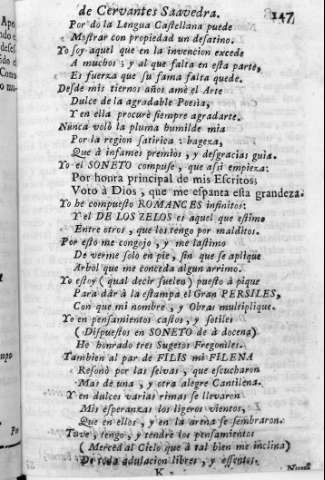 de Cervantes Saavedra. 147
Por do la Lengua Castellana puede
Mostrar con propiedad un desatino.
Yo soy aquel que en la invencion excede
A muchos; y al que falta en esta parte,
Es fuerza que su fama falta quede.
Desde mis tiernos años amè el Arte
Dulce de la agradable Poesìa,
Y en ella procurè siempre agradarte.
Nunca volò la pluma humilde mia
Por la region satirica: bageza,
Que à infames premios, y desgracias guia.
Yo el SONETO compuse, que assi empieza:
Por honra principal de mis Escritos;
Voto à Dios, que me espanta esta grandeza.
Yo he compuesto ROMANCES infinitos:
Y el DE LOS ZELOS es aquel que estimo
Entre otros, que los tengo por malditos.
Por esto me congojo, y me lastimo
De verme solo en pie, sin que se aplique
Arbol que me conceda algun arrimo.
Yo estoy (qual decir suelen) puesto à pique
Para dàr à la estampa el Gran PERSILES,
Con que mi nombre, y Obras multiplique.
Yo en pensamientos castos, y sotiles
(Dispuestos en SONETO de à docena)
He honrado tres Sugetos Fregoniles.
Tambien al par de FILIS mi FILENA
Resonò por las selvas, que escucharon
Mas de una, y otra alegre Cantilena.
Y en dulces varias rimas se llevaron
Mis esperanzas los ligeros vientos,
Que en ellos, y en la arena se sembraron.
Tuve, tengo, y tendrè los pensamientos
(Merced al Cielo que à tal bien me inclina)
De toda adulacion libres, y essentos.
K